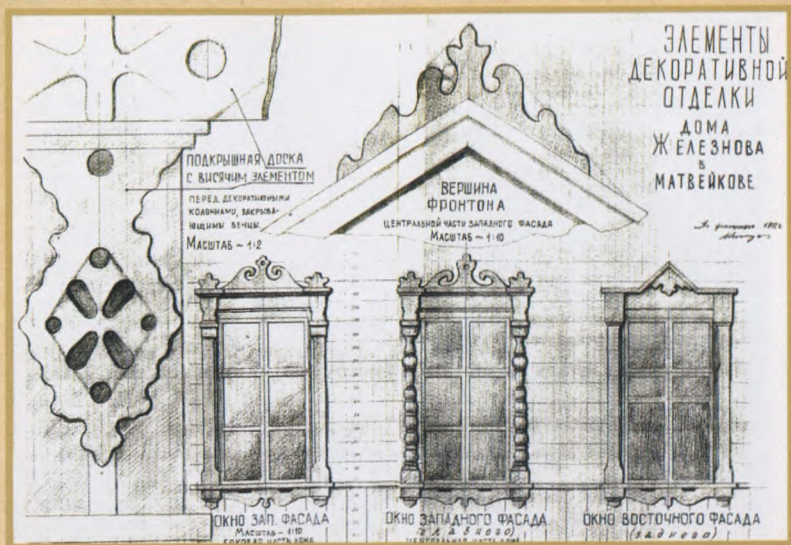 ЭЛЕМЕНТЫ
ДЕКОРАТИВНОЙ
ОТДЕЛКИ
ДОМА
ЖЕЛЕЗНОВА
В
МАТВЕЙКОВЕ
ПОДКРЫШНАЯ ДОСКА
С ВИСЯЧИМ ЭЛЕМЕНТОМ
ПЕРЕД ДЕКОРАТИВНЫМИ
КОЛОННАМИ, ЗАКРЫВА-
ЮЩИМИ ВЕНЦЫ.
МАСШТАБ ~ 1:2
ВЕРШИНА
ФРОНТОНА
ЦЕНТРАЛЬНОЙ ЧАСТИ ЗАПАДНОГО ФАСАДА
МАСШТАБ ~ 1:10
ОКНО ЗАП. ФАСАДА
МАСШТАБ ~ 1:10
БОКОВАЯ ЧАСТЬ ДОМА
ОКНО ЗАПАДНОГО ФАСАДА
(главного)
ЦЕНТРАЛЬНАЯ ЧАСТЬ ДОМА
ОКНО ВОСТОЧНОГО ФАСАДА
(заднего)